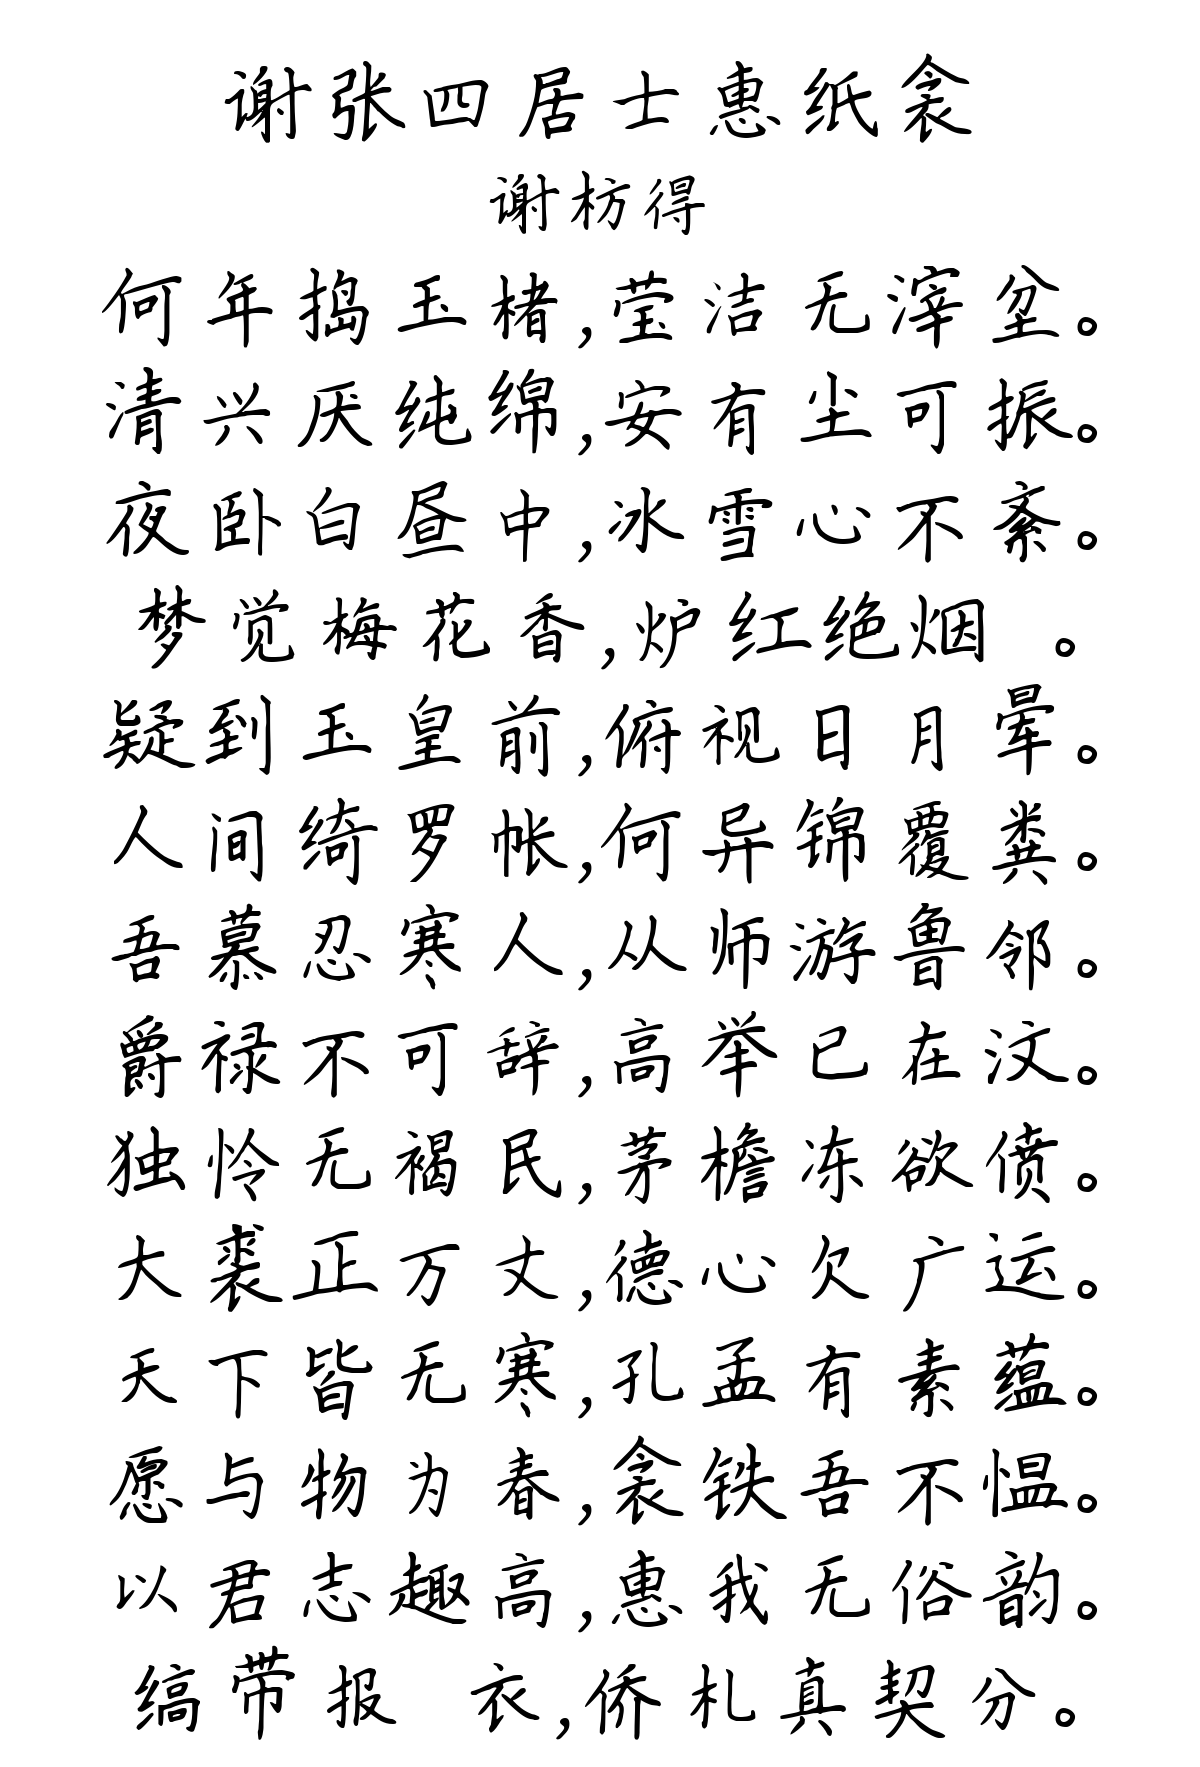 谢张四居士惠纸衾
谢枋得
何年捣玉楮,莹洁无滓坌。
清兴厌纯绵,安有尘可振。
夜卧白昼中,冰雪心不紊。
梦觉梅花香,炉红绝烟 。
疑到玉皇前,俯视日月晕。
人间绮罗帐,何异锦覆粪。
吾慕忍寒人,从师游鲁邻。
爵禄不可辞,高举已在汶。
独怜无褐民,茅檐冻欲偾。
大裘正万丈,德心欠广运。
天下皆无寒,孔孟有素蕴。
愿与物为春,衾铁吾不愠。
以君志趣高,惠我无俗韵。
缟带报 衣,侨札真契分。